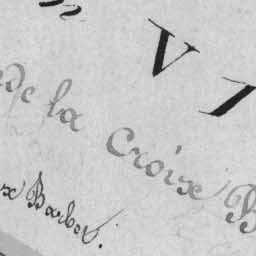 n VI
de la croix B
x Barbet.